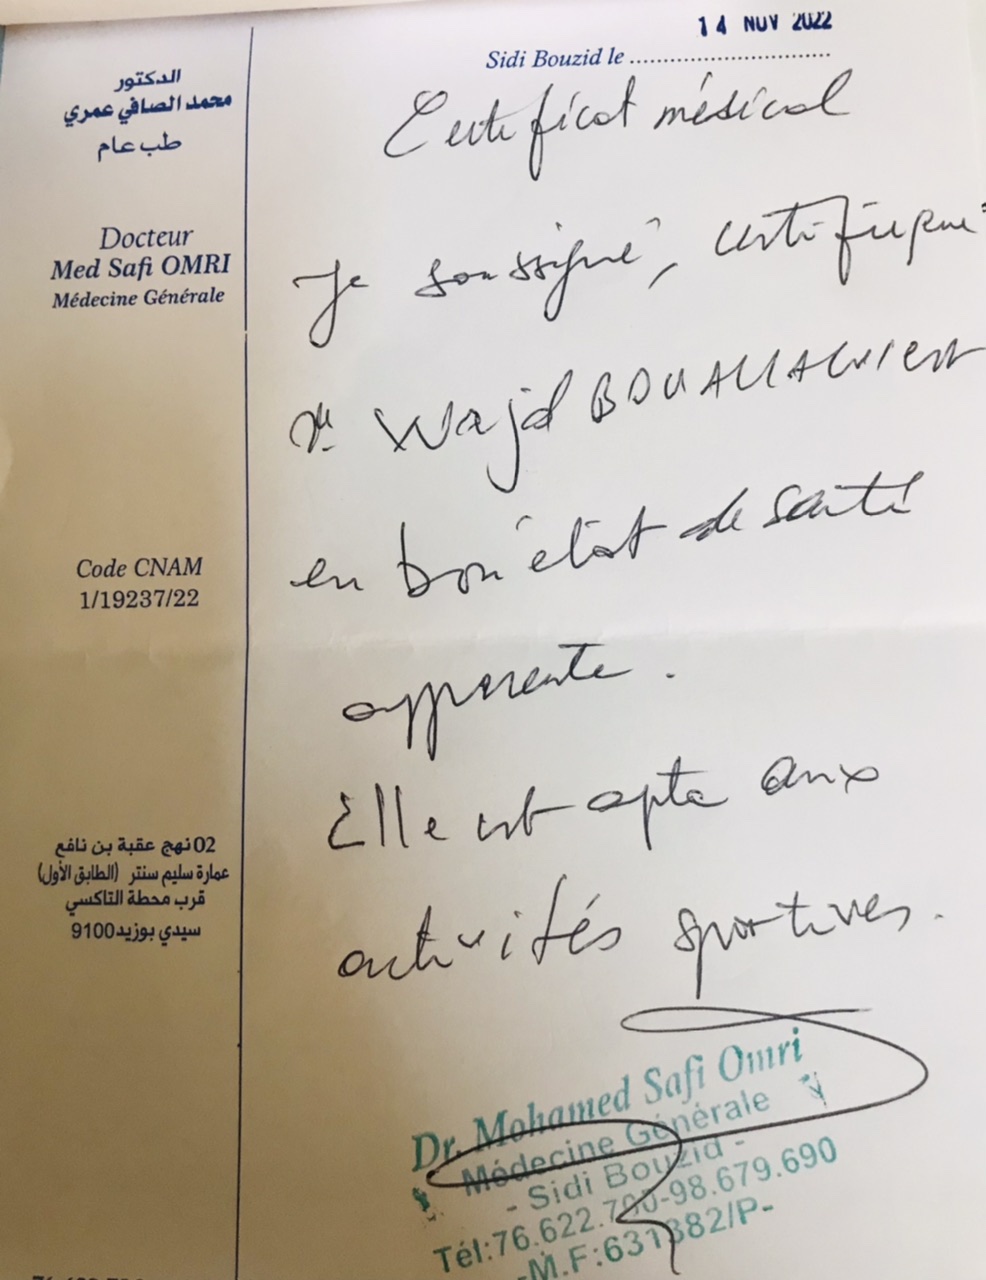 14 NOV 2022
Sidi Bouzid le
الدكتور
محمد الصافي عمري
طب عام
Docteur
Med Safi OMRI
Médecine Générale
Code CNAM
1/19237/22
02 نهج عقبة بن نافع
عمارة سليم سنتر (الطابق الأول)
قرب محطة التاكسي
سيدي بوزيد 9100
Certificat médical
Je soussigné, certifie que
Wajd
en bon état de santé
apparente.
Elle est apte aux
activités sportives.
Dr. Mohamed Safi Omri
Médecine Générale
- Sidi Bouzid -
Tél:76.622.700-98.679.690
-M.F:631382/P-